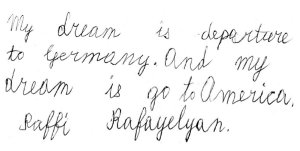 My dream is departure
to Germany. And my
dream is go to America.
Raffi Rafayelyan.